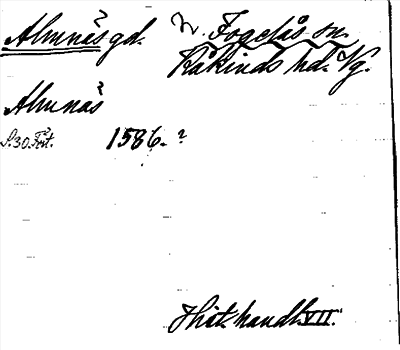 Almnäs gd. N. Fogelås sn.
Kåkinds hd. Vg.
Almnäs
S. 30 Fört. 1586. ?
Hist. handl. VII.